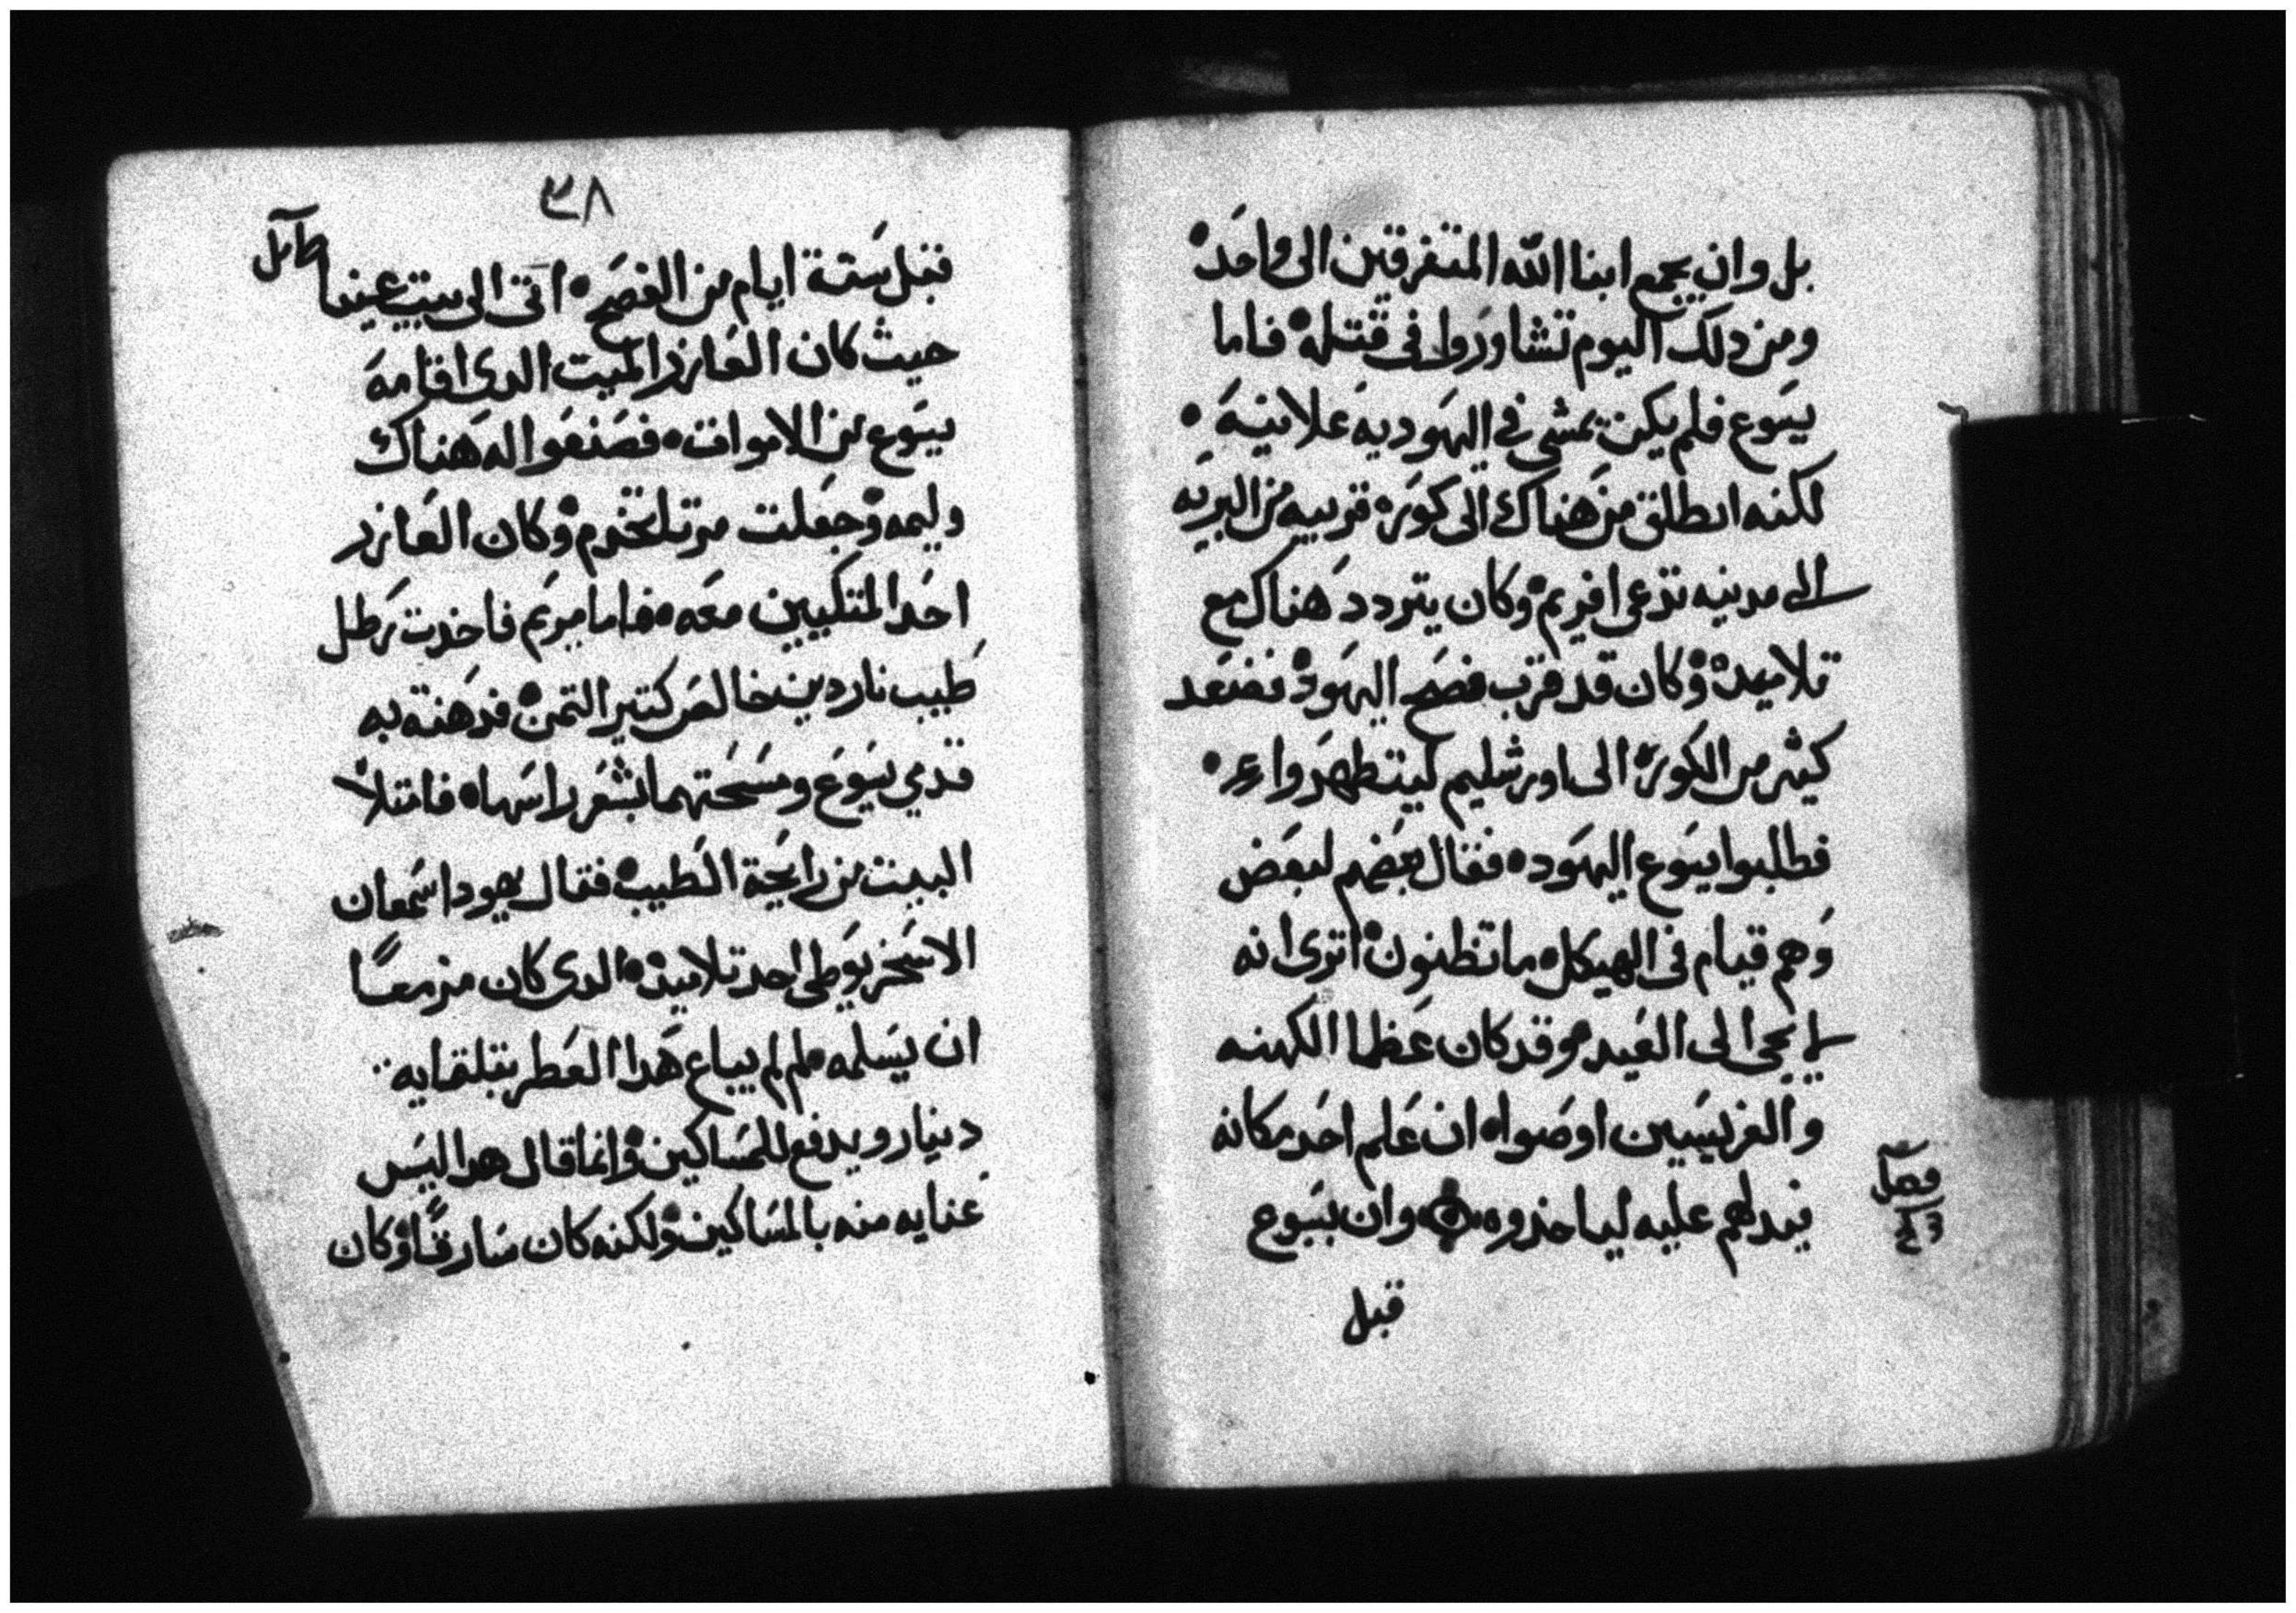 بل وان يجمع ابنا الله المتفرقين الى واحد
ومن دلك اليوم تشاوروا فى قتله فاما
يسوع فلم يكن يمشي في اليهوديه علانيه
لكنه انطلق من هناك الى كوره قريبه من البريه
الى مدينه تدعى افريم وكان يتردد هناك مع
تلاميده وكان قد قرب فصح اليهود فصعد
كثير من الكوره الى اورشليم ليتطهروا
فطلبوا يسوع اليهود فقال بعضهم لبعض
وهم قيام في الهيكل ما تظنون اترى انه
لا يجى الى العيد وقد كان عظما الكهنه
والفريسيين اوصوا ان علم احد مكانه
فيدلهم عليه لياخذوه وان يسوع
فصل
قبل
٣٨
قبل ستة ايام من الفصح اتى الى بيت عنيا
حيث كان العازر الميت الدى اقامه
يسوع من الاموات فصنعوا له هناك
وليمه وجعلت مرتا تخدم وكان العازر
احد المتكيين معه فاما مريم فاخدت رطل
طيب ناردين خالص كتير التمن فدهنة به
قدمي يسوع ومسحتهما بشعر راسها فامتلا
البيت من رايحة الطيب فقال يهودا سمعان
الاسخريوطى احد تلاميده الدى كان مزمعا
ان يسلمه لم لم يباع هدا العطر بتلتمايه
دينار ويدفع للمساكين وانما قال هدا ليس
عنايه منه بالمساكين ولكنه كان سارقا وكان